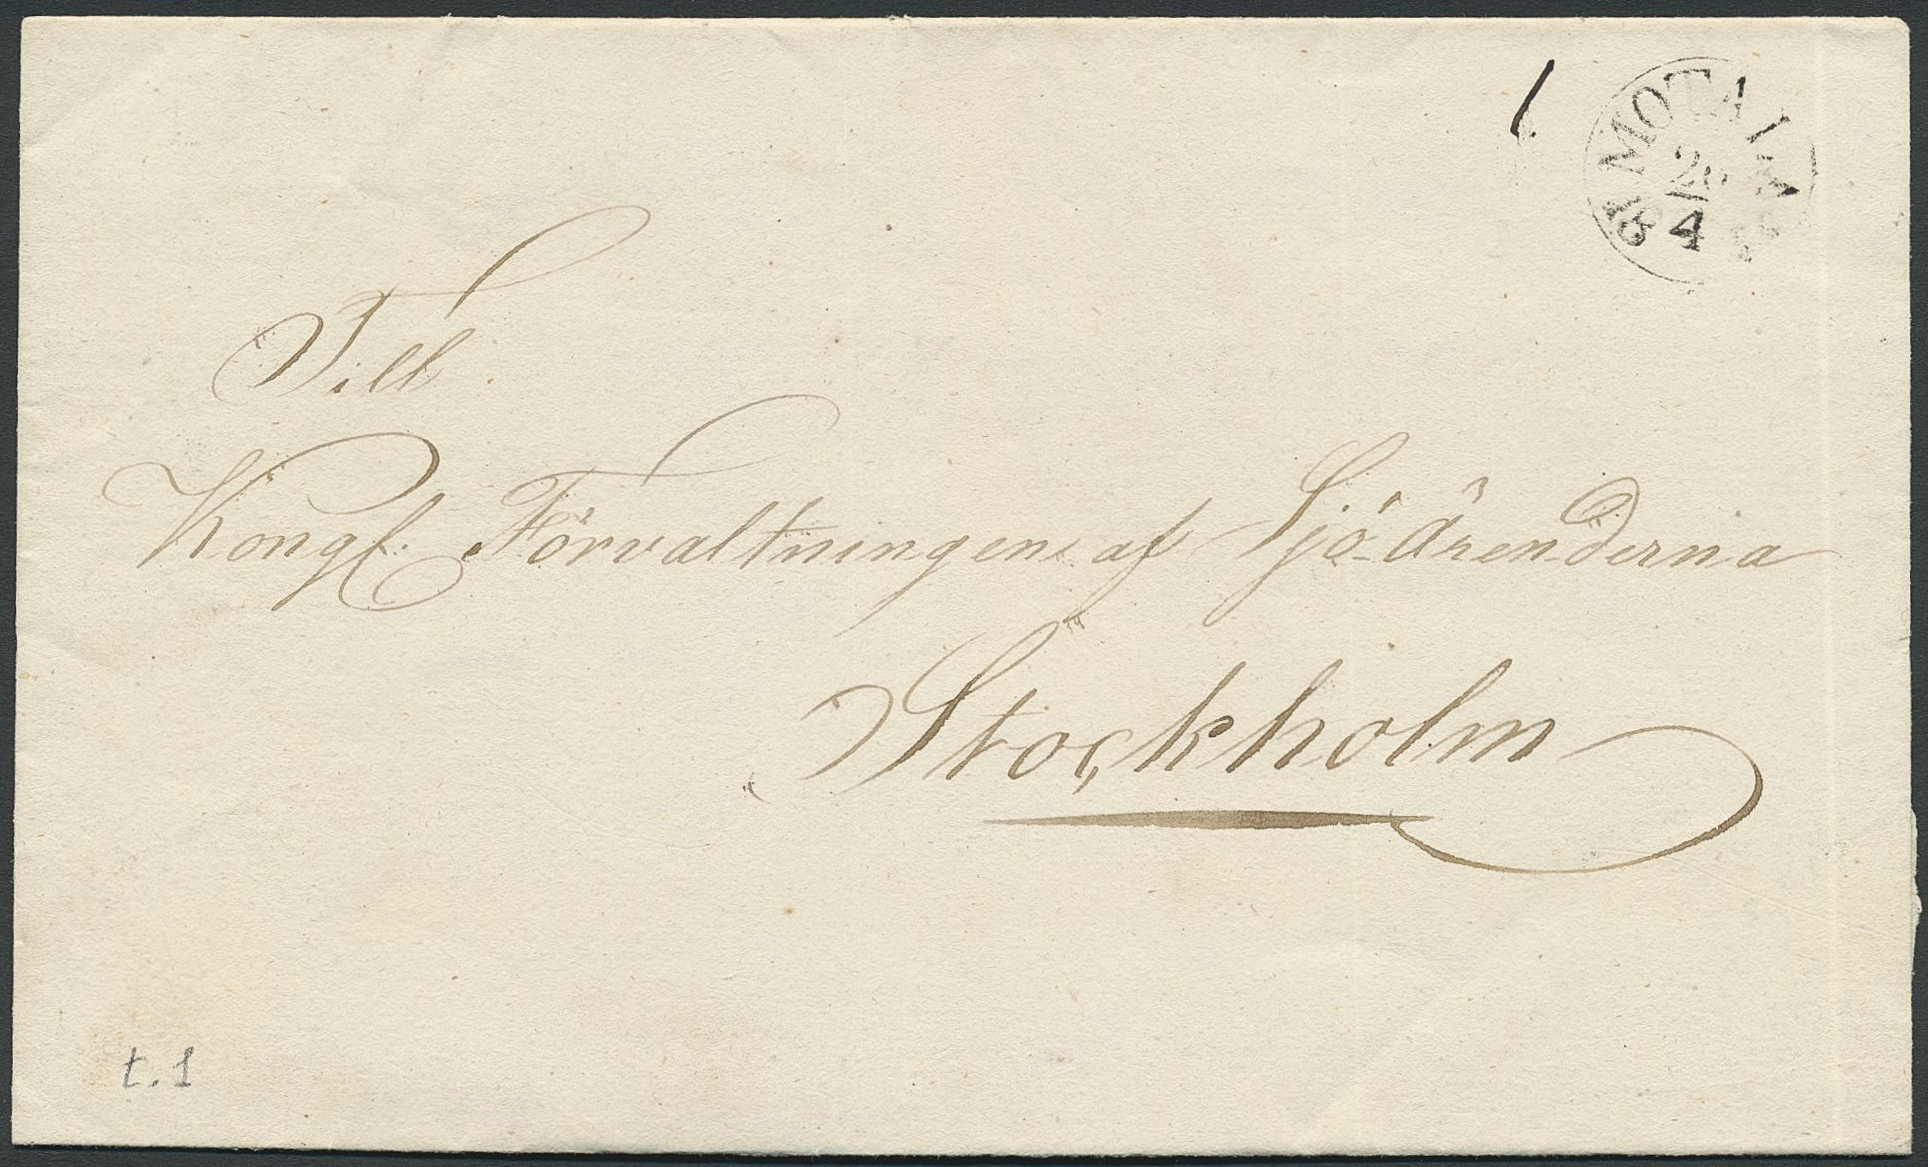 1
MOTALA
4
Till
Kongl. Förvaltningen af Sjö-Ärenderna
Stockholm
t.1